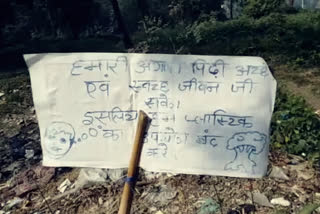 हमारी अगली पिढी अच्छे
एवं स्वच्छ जीवन जी
सके।
इसलिए हम प्लास्टिक
का उपयोग बंद
करे